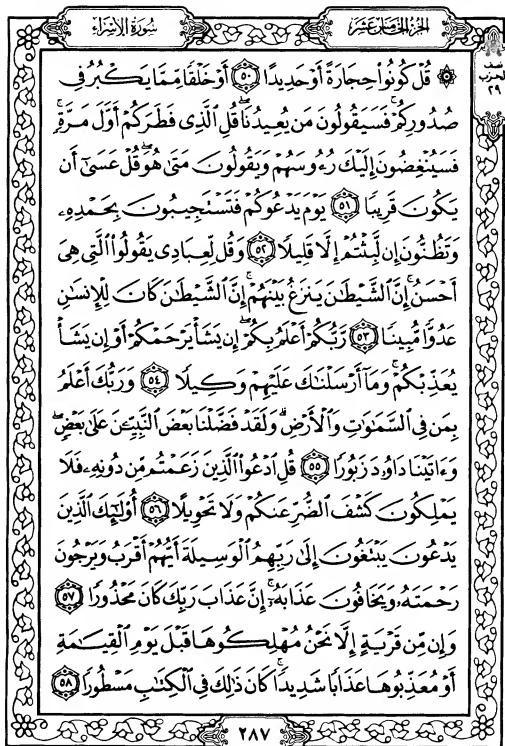 الجزء الخامس عشر
سورة الإسراء
نصف
الحزب
٢٩
۞ قُلْ كُونُوا۟ حِجَارَةً أَوْ حَدِيدًا ٥٠ أَوْ خَلْقًا مِّمَّا يَكْبُرُ فِى
صُدُورِكُمْ ۚ فَسَيَقُولُونَ مَن يُعِيدُنَا ۖ قُلِ ٱلَّذِى فَطَرَكُمْ أَوَّلَ مَرَّةٍ ۚ
فَسَيُنْغِضُونَ إِلَيْكَ رُءُوسَهُمْ وَيَقُولُونَ مَتَىٰ هُوَ ۖ قُلْ عَسَىٰٓ أَن
يَكُونَ قَرِيبًا ٥١ يَوْمَ يَدْعُوكُمْ فَتَسْتَجِيبُونَ بِحَمْدِهِۦ
وَتَظُنُّونَ إِن لَّبِثْتُمْ إِلَّا قَلِيلًا ٥٢ وَقُل لِّعِبَادِى يَقُولُوا۟ ٱلَّتِى هِىَ
أَحْسَنُ ۚ إِنَّ ٱلشَّيْطَٰنَ يَنزَغُ بَيْنَهُمْ ۚ إِنَّ ٱلشَّيْطَٰنَ كَانَ لِلْإِنسَٰنِ
عَدُوًّا مُّبِينًا ٥٣ رَّبُّكُمْ أَعْلَمُ بِكُمْ ۖ إِن يَشَأْ يَرْحَمْكُمْ أَوْ إِن يَشَأْ
يُعَذِّبْكُمْ ۚ وَمَآ أَرْسَلْنَٰكَ عَلَيْهِمْ وَكِيلًا ٥٤ وَرَبُّكَ أَعْلَمُ
بِمَن فِى ٱلسَّمَٰوَٰتِ وَٱلْأَرْضِ ۗ وَلَقَدْ فَضَّلْنَا بَعْضَ ٱلنَّبِيِّۦنَ عَلَىٰ بَعْضٍ ۖ
وَءَاتَيْنَا دَاوُۥدَ زَبُورًا ٥٥ قُلِ ٱدْعُوا۟ ٱلَّذِينَ زَعَمْتُم مِّن دُونِهِۦ فَلَا
يَمْلِكُونَ كَشْفَ ٱلضُّرِّ عَنكُمْ وَلَا تَحْوِيلًا ٥٦ أُو۟لَٰٓئِكَ ٱلَّذِينَ
يَدْعُونَ يَبْتَغُونَ إِلَىٰ رَبِّهِمُ ٱلْوَسِيلَةَ أَيُّهُمْ أَقْرَبُ وَيَرْجُونَ
رَحْمَتَهُۥ وَيَخَافُونَ عَذَابَهُۥٓ ۚ إِنَّ عَذَابَ رَبِّكَ كَانَ مَحْذُورًا ٥٧
وَإِن مِّن قَرْيَةٍ إِلَّا نَحْنُ مُهْلِكُوهَا قَبْلَ يَوْمِ ٱلْقِيَٰمَةِ
أَوْ مُعَذِّبُوهَا عَذَابًا شَدِيدًا ۚ كَانَ ذَٰلِكَ فِى ٱلْكِتَٰبِ مَسْطُورًا ٥٨
٢٨٧